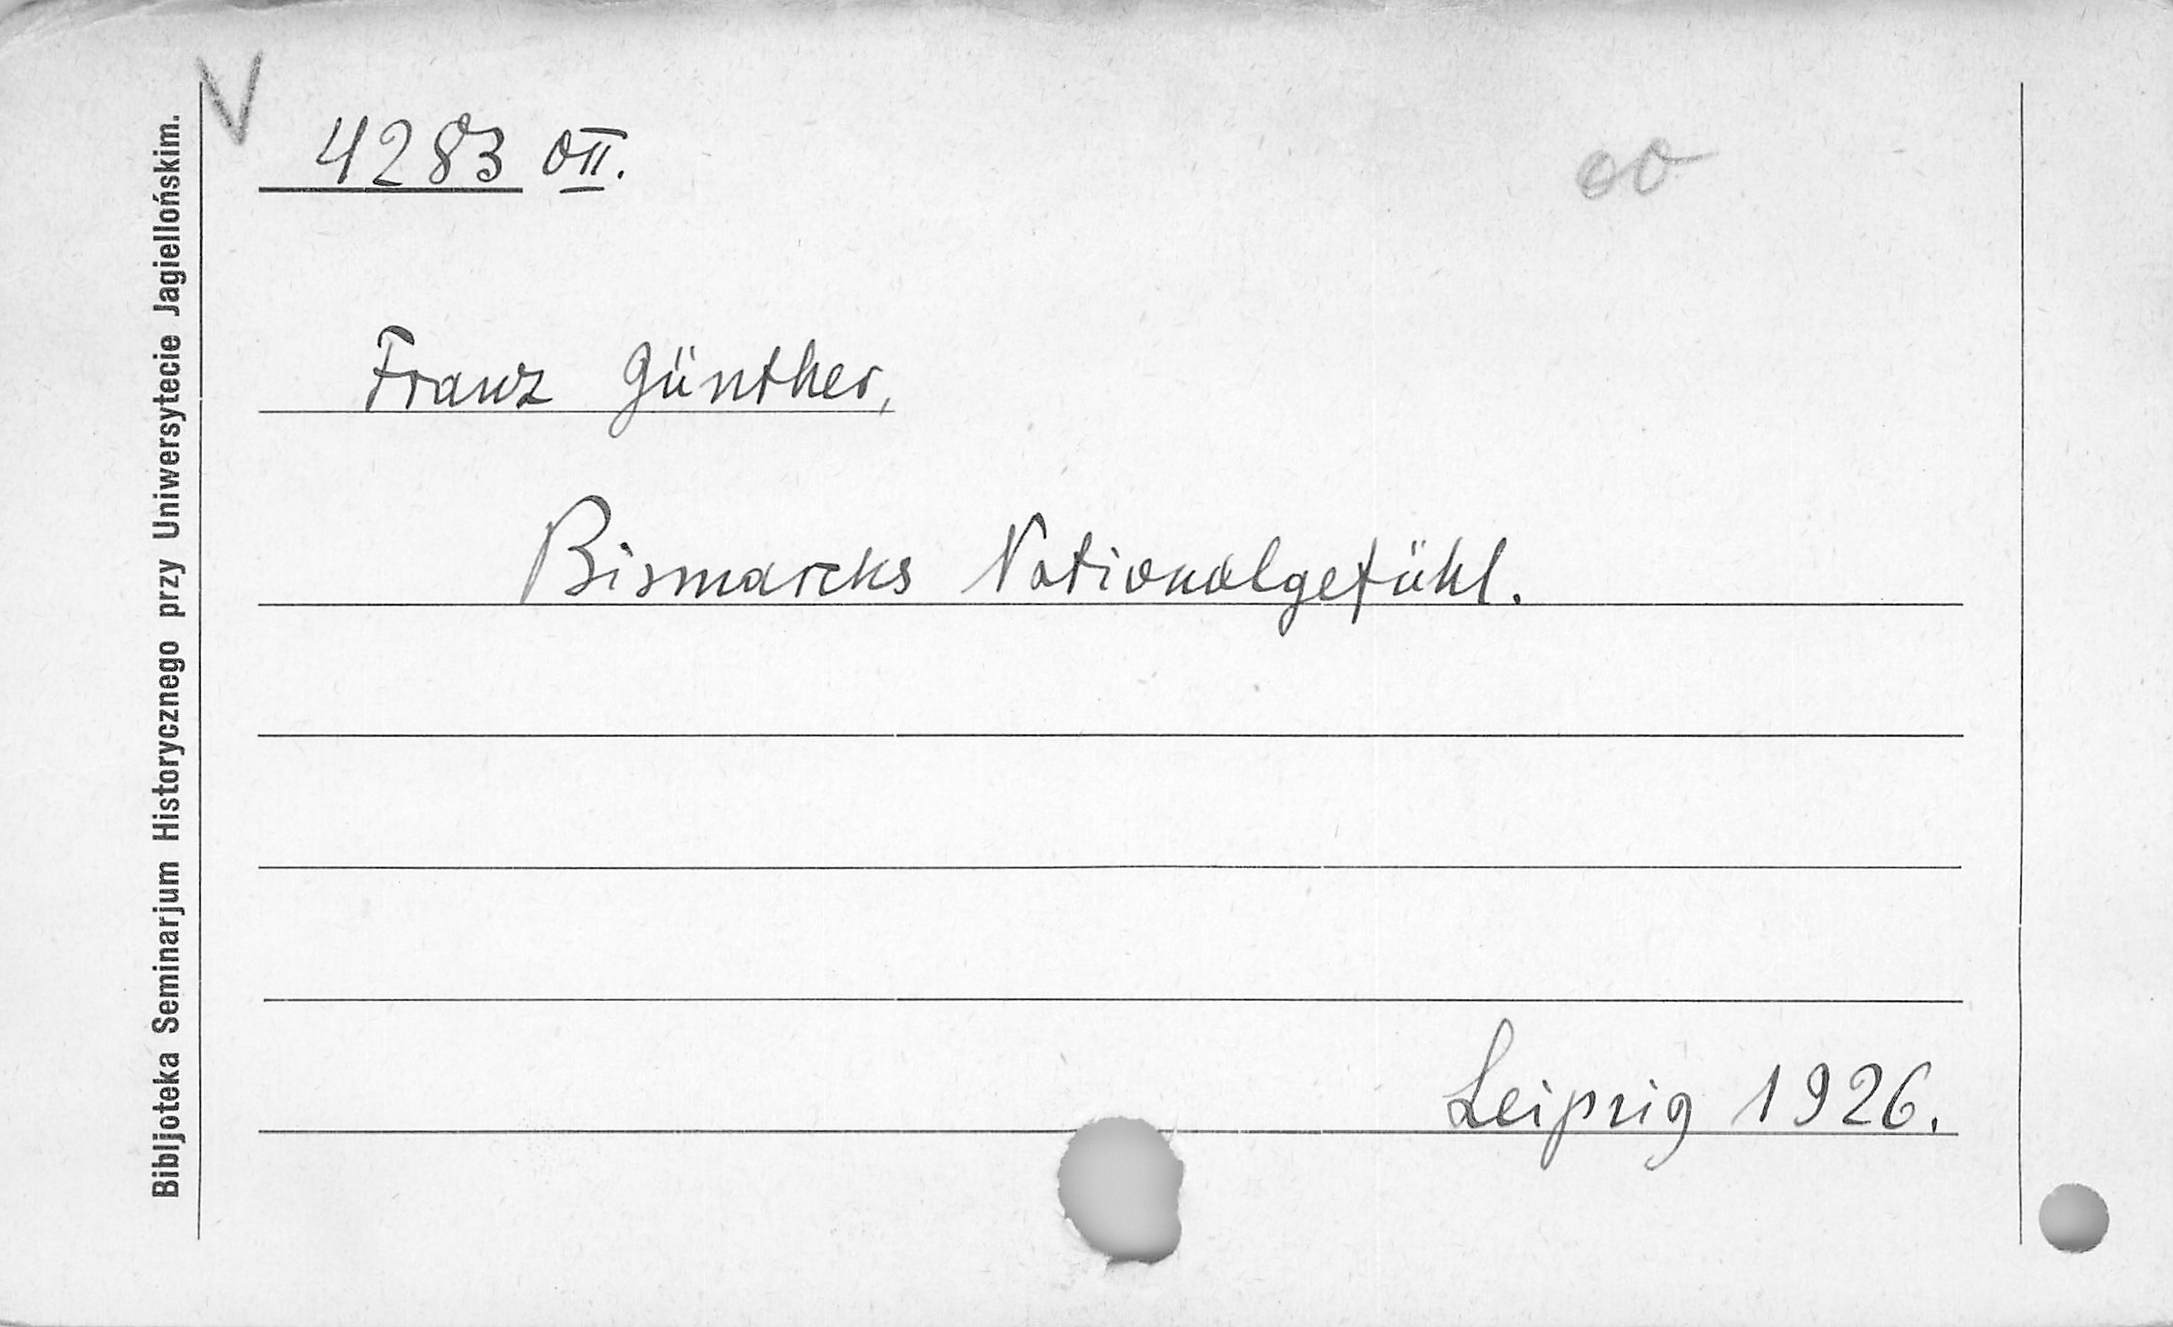 V
4283 oII.
Franz Günther,
Bismarcks Nationalgefühl.
Leipzig 1926.
Bibljoteka Seminarjum Historycznego przy Uniwersytecie Jagiellońskim.